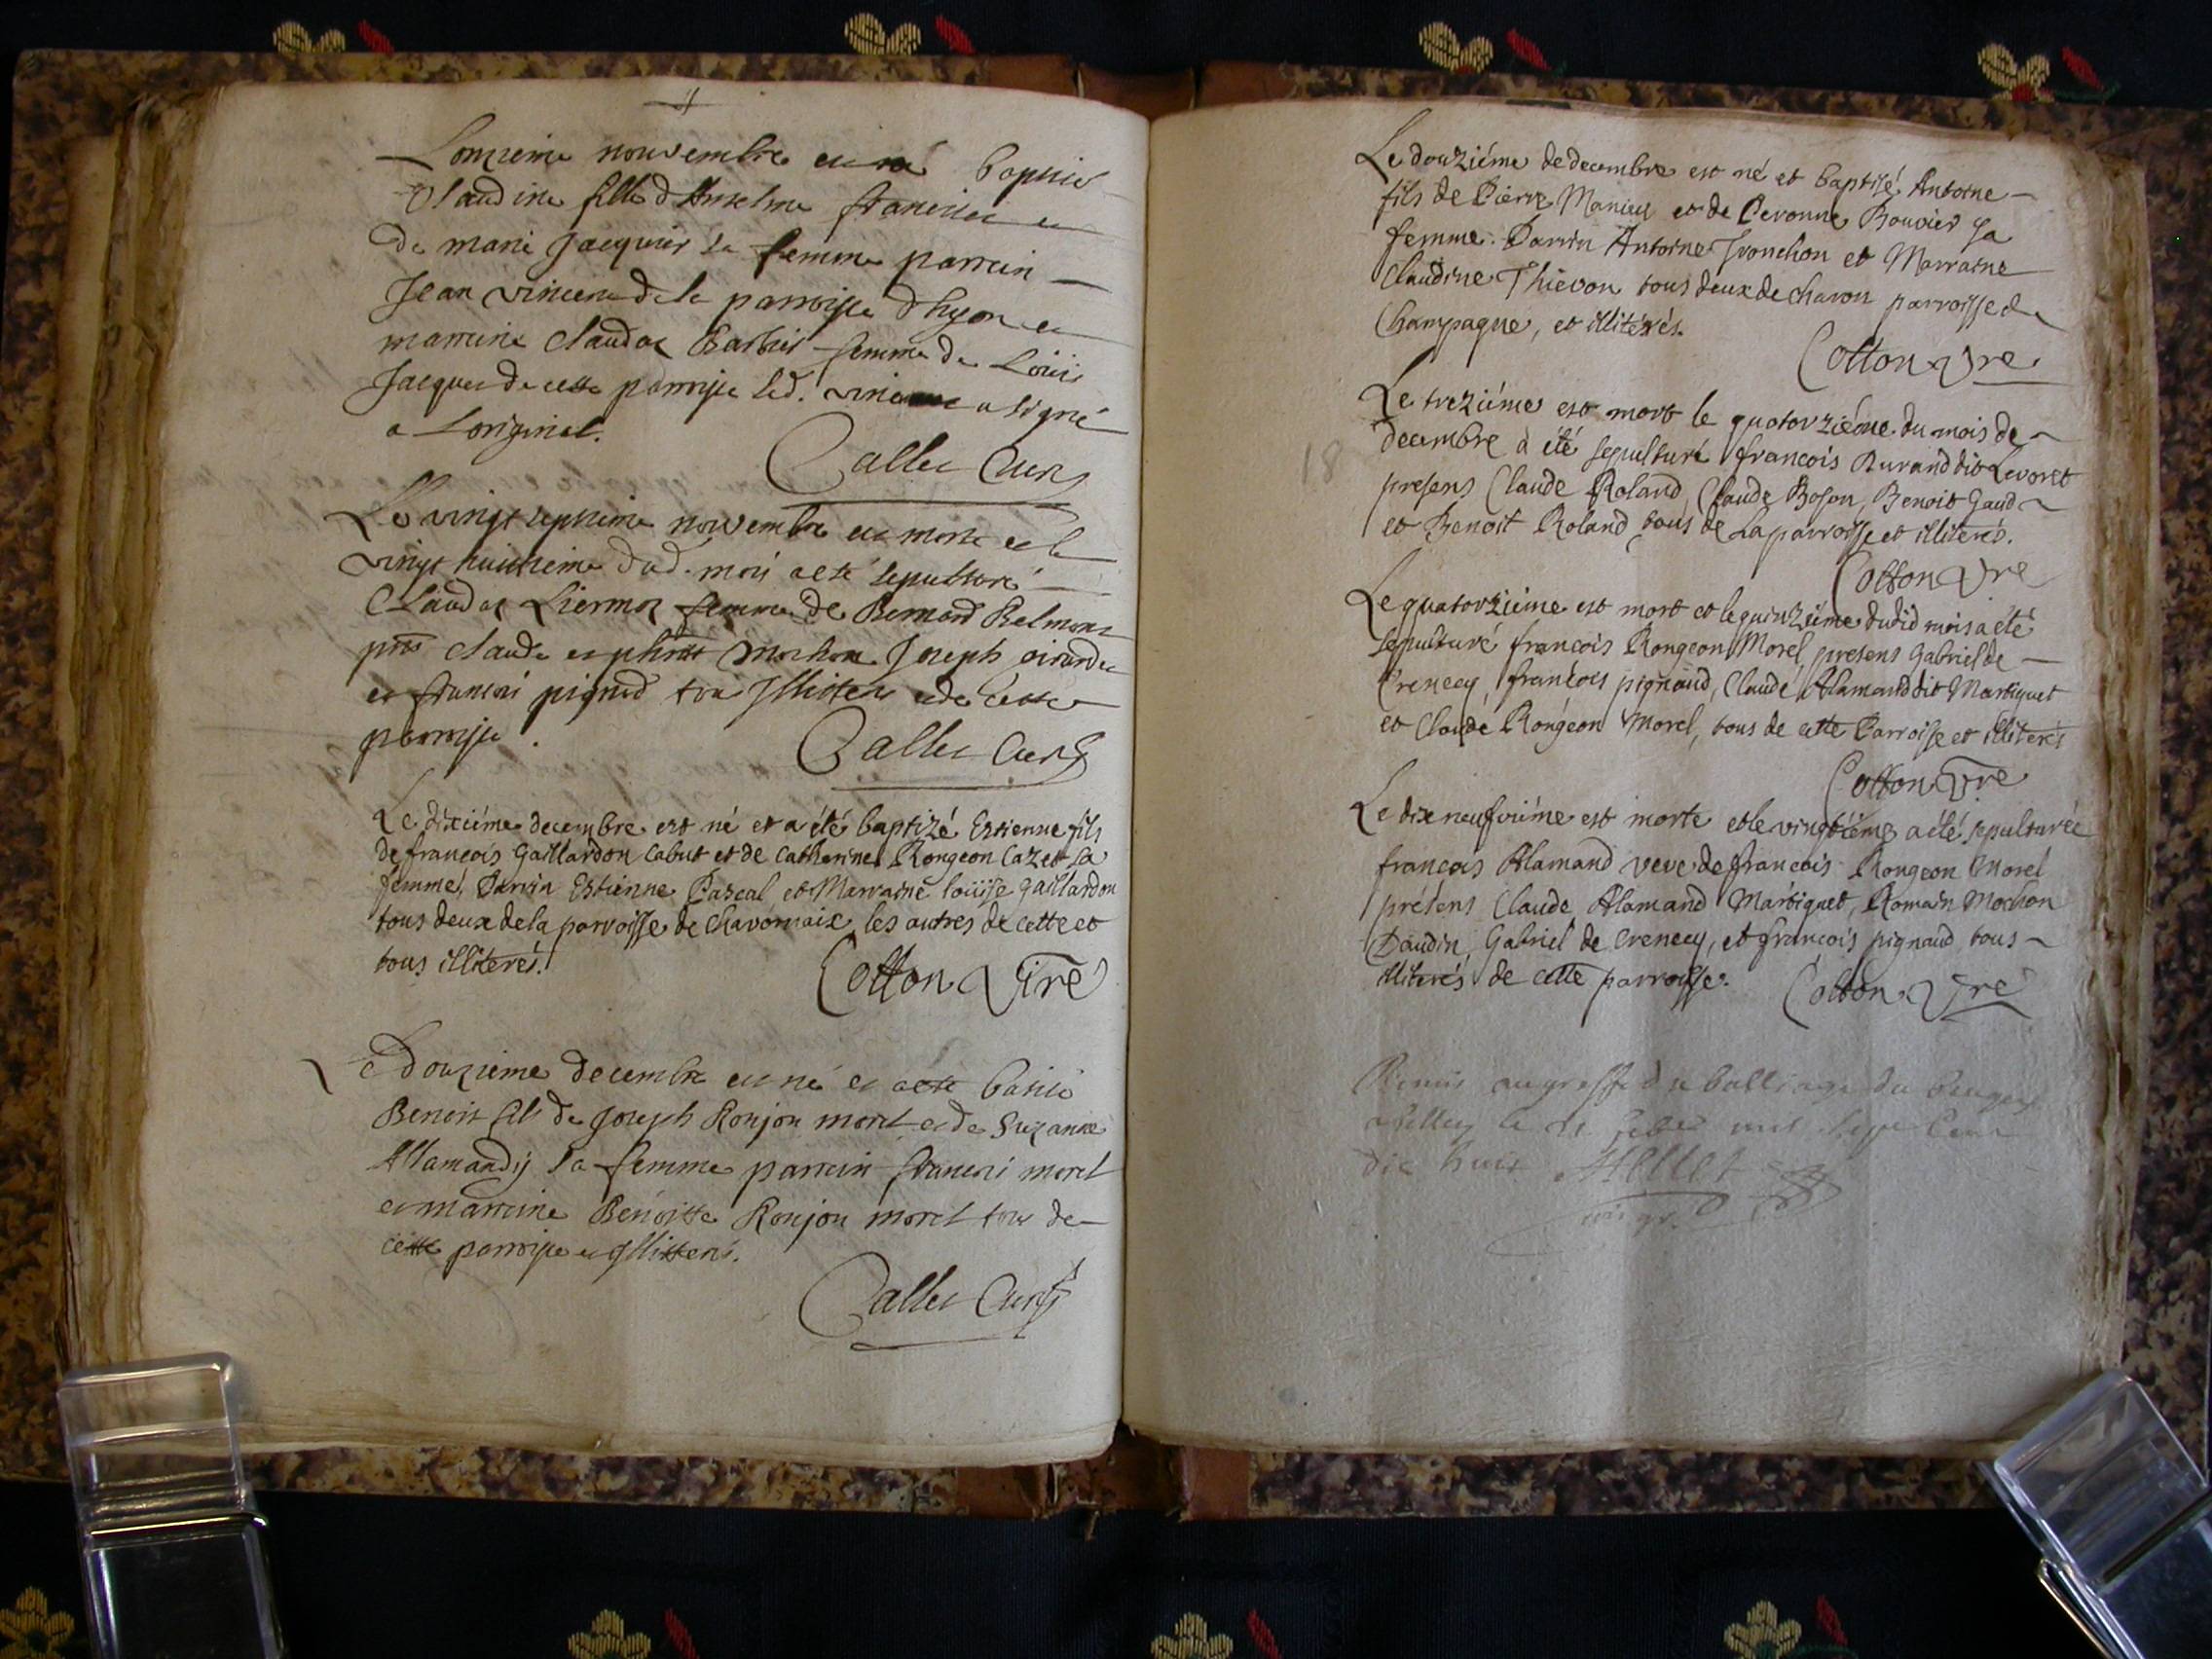 Lonzieme novembre est né baptisé
Claudine fille d Anselme francillet et
de marie Jacquier sa femme parrein
Jean vincent de la parroisse d hyon et
marreine Claudaz Barbier femme de Louis
Jacques de cette parroisse led. vincent a signé
a Loriginal.
Callet Curé
Le vingt septieme novembre est morte et le
vingt huictieme dud. mois a esté sepulturé
Claudaz Liermoz femme de Bernard Belmont
pnts claude et phibert Mochon Joseph girardet
et francois pignod tous Jllitterés de cette
parroisse.
Callet Curé
Le dixiéme decembre est né et a été baptizé Estienne fils
de francois Gaillardon Cabut et de Catherine Rongeon Cazet sa
femme, Parrin Estienne Pascal, et Marraine loüise Gaillardon
tous deux de la parroisse de Chavornaix les autres de cette et
tous illiterés.
Cotton Vire
Le Douzieme decembre est né et a esté batisé
Benoit fils de Joseph Ronjon morel et de Suzanne
Allamandij sa femme parrein francois morel
et marreine Benoitte Ronjon morel tous de
cette parroisse et Jllitterés.
Callet Curé
Le douziéme de decembre est né et baptisé Antoine
fils de Pierre Manieu et de Peronne Bouvier sa
femme. Parrin Antoine Tronchon et Marraine
Claudine Thievon tous deux de charon parroisse de
Champagne, et illiterés.
Cotton Vre
Le treziéme est mort le quatorziéme du mois de
decembre a été sepulturé francois Durand dit Levoret
presens Claude Roland, Claude Boson, Benoit Gaud
et Benoit Roland tous de la parroisse et illiterés.
Cotton Vre
18
Le quatorziéme est mort et le quinziéme dudid mois a été
sepulturé francois Rongeon Morel, presens Gabriel de
Crenecy, francois pignaud, Claude Alamand dit Martiquet
et Claude Rongeon Morel, tous de cette Parroisse et illiterés
Cotton Vre
Le dixneufviéme est morte et le vingtiéme a été sepulturée
francois Alamand veve de francois Rongeon Morel
présens Claude Alamand Martiquet, Romain Mochon
Daudin, Gabriel de Crenecy, et francois pignaud tous
illiterés de cette parroisse.
Cotton Vre
Remis au greffe du balliage du beugey
a Belley le 21 febvr mil sept cent
dix huit Mellet